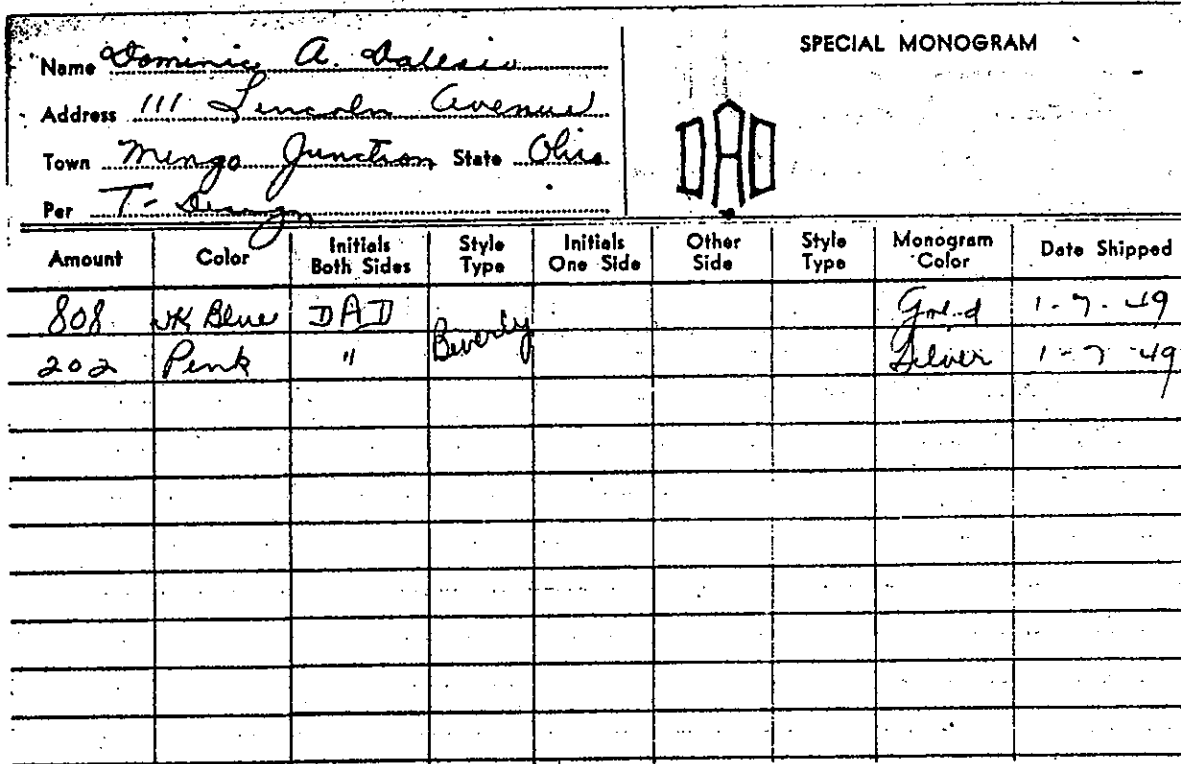 SPECIAL MONOGRAM
Name Dominic A. Dalesio
Address 111 Lincoln Avenue
Town Mingo Junction State Ohio
Per T- Design
DAD
Amount Color Initials Both Sides Style Type Initials One Side Other Side Style Type Monogram Color Date Shipped
808 DK Blue DAD Beverly Gold 1-7-49
202 Pink " Silver 1-7-49